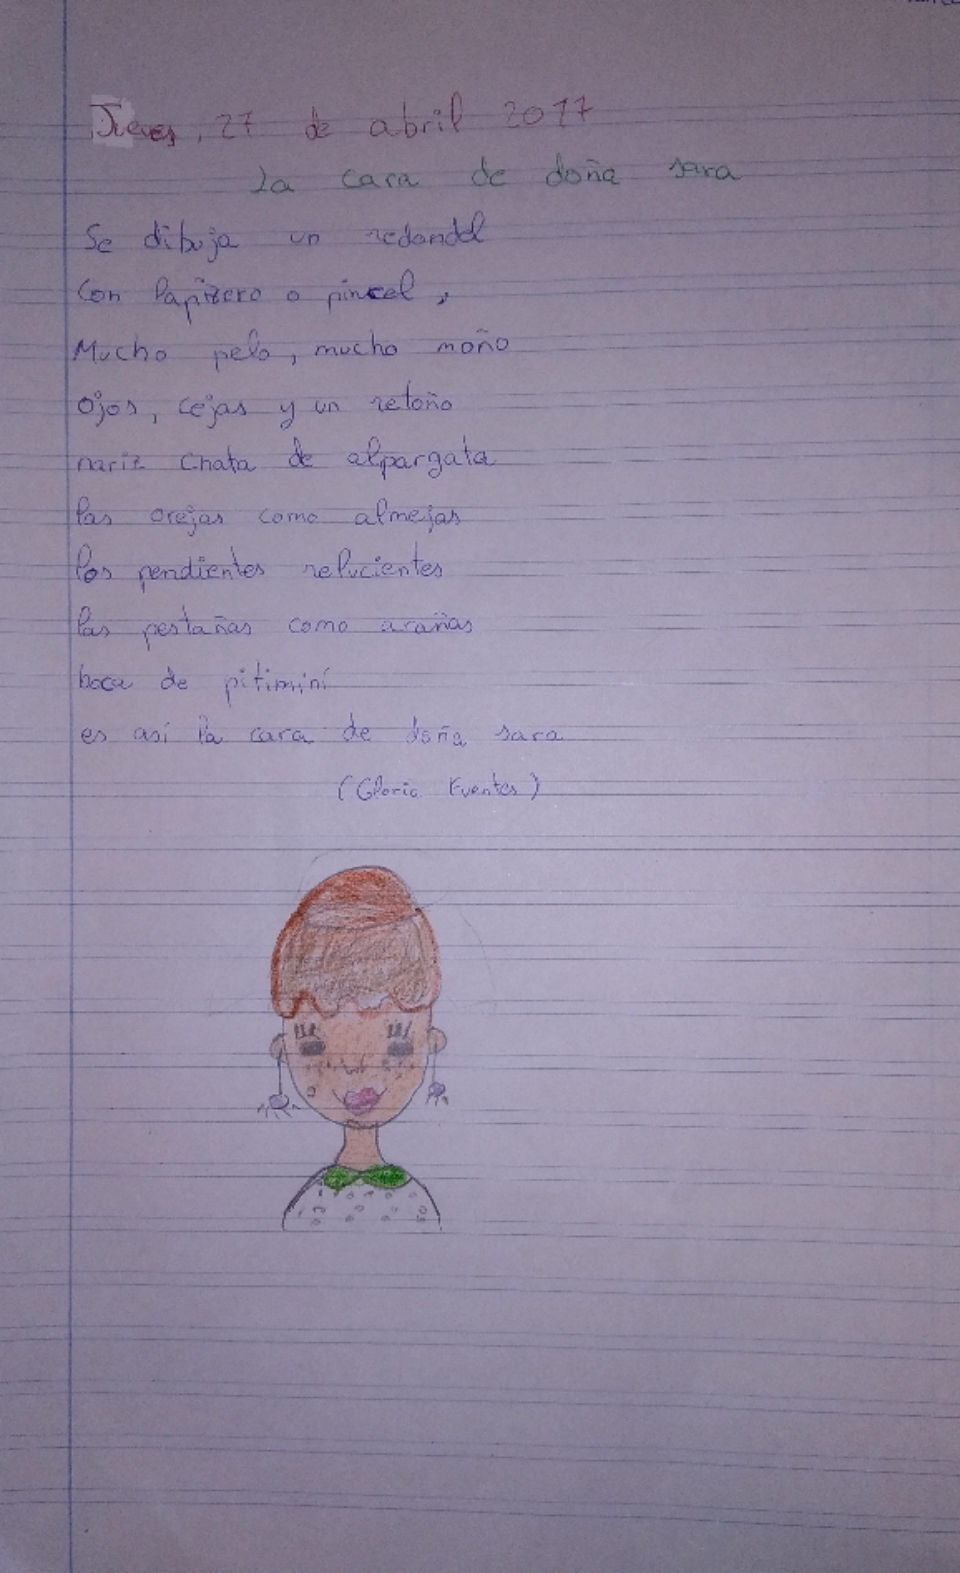 Jueves, 27 de abril 2017
La cara de doña sara
Se dibuja un redondel
Con lapizero o pincel,
Mucho pelo, mucho moño
Ojos, cejas y un retoño
nariz chata de alpargata
las orejas como almejas
los pendientes relucientes
las pestañas como arañas
boca de pitiminí
es así la cara de doña sara
(Gloria Fuentes)